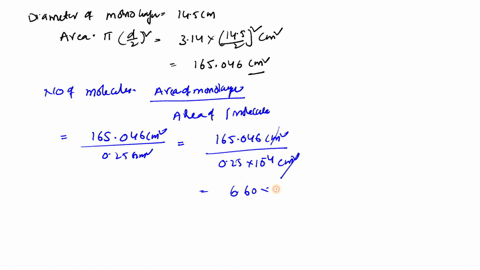 Diameter of monolayer = 14.5cm
Area = π (d/2)² = 3.14 × (14.5/2)² cm²
= 165.046 cm²
NO of molecules = Area of monolayer / Area of 1 molecule
= 165.046 cm² / 0.25 nm² = 165.046 cm² / 0.25 × 10⁻¹⁴ cm²
= 6.60 ×